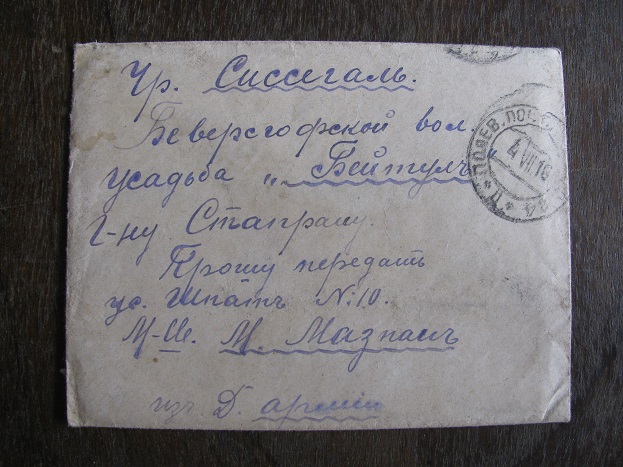 Чр. Сиссегаль.
Беверсгофской вол.
усадьба „Бейтулъ"
Г-ну Стапрану.
Прошу передать
ус. Шпатъ №10.
М-Lle. М. Мазпанъ
изъ Д. армии
ПОЛЕВ. ПОЧ.
4 VII 16